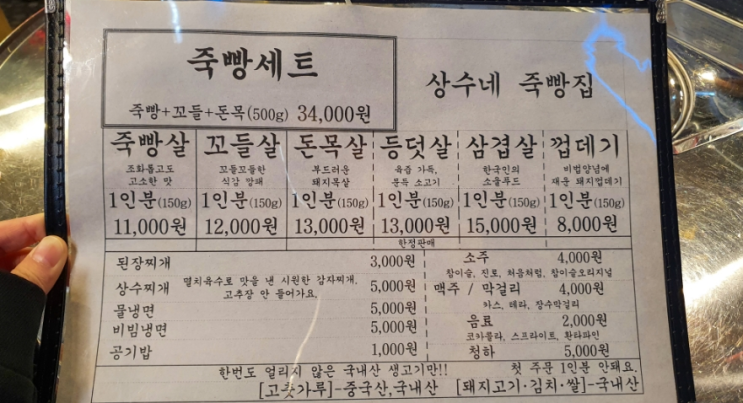 죽빵세트
죽빵+꼬들+돈목(500g) 34,000원
상수네 죽빵집
죽빵살 꼬들살 돈목살 등덧살 삼겹살 껍데기
조화롭고도 꼬들꼬들한 부드러운 육즙 가득, 한국인의 비법양념에
고소한 맛 식감 깡패 돼지목살 문득 소고기 소울푸드 재운 돼지껍데기
1인분(150g) 1인분(150g) 1인분(150g) 1인분(150g) 1인분(150g) 1인분(150g)
11,000원 12,000원 13,000원 13,000원 15,000원 8,000원
한정판매
된장찌개 3,000원
상수찌개 멸치육수로 맛을 낸 시원한 감자찌개. 5,000원
고추장 안 들어가요.
물냉면 5,000원
비빔냉면 5,000원
공기밥 1,000원
소주 4,000원
참이슬, 진로, 처음처럼, 참이슬오리지널
맥주 / 막걸리 4,000원
카스, 테라, 장수막걸리
음료 2,000원
코카콜라, 스프라이트, 환타파인
청하 5,000원
한번도 얼리지 않은 국내산 생고기만!! 첫 주문 1인분 안돼요.
[고춧가루]-중국산,국내산 [돼지고기·김치·쌀]-국내산